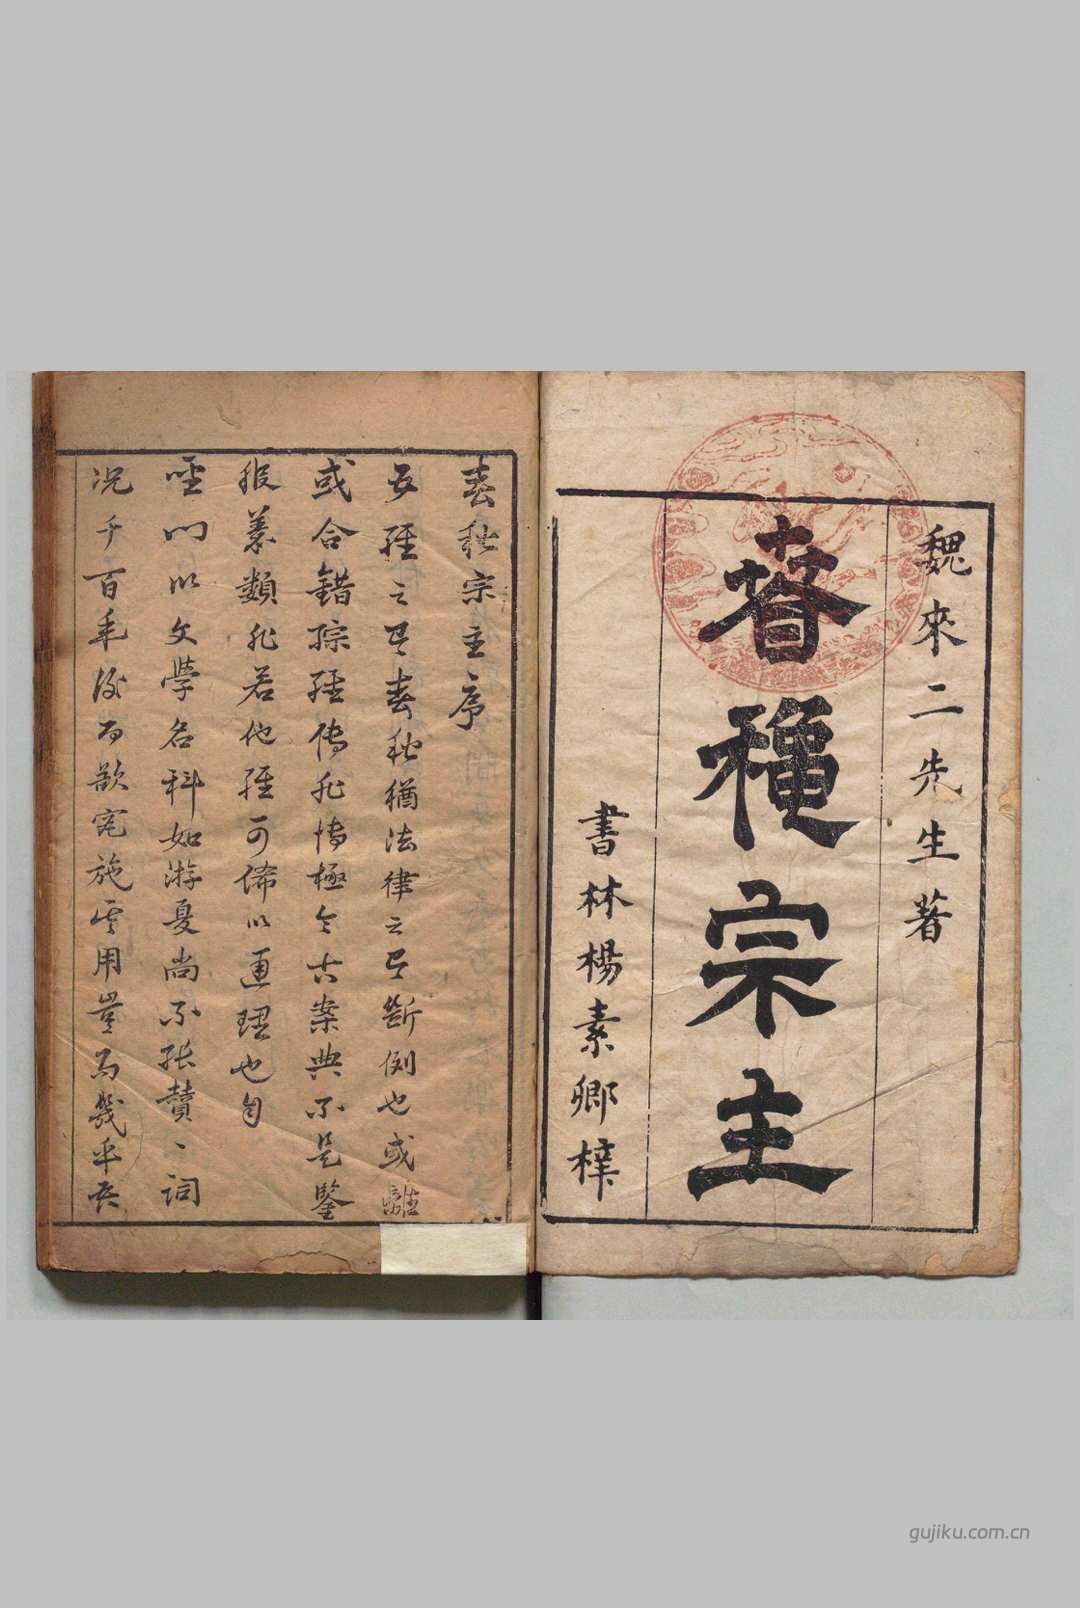 魏來二先生著
春穐宗主
書林楊素卿梓
春秋宗主序
五經之有春秋猶法律之有斷例也或離
或合錯綜經傳非博極今古案典不足鑒
類非若他經可以通理也自
聖門以文學名科如游夏尚不能贊一詞
況千百年後而欲究施其用豈易幾乎
gujiku.com.cn